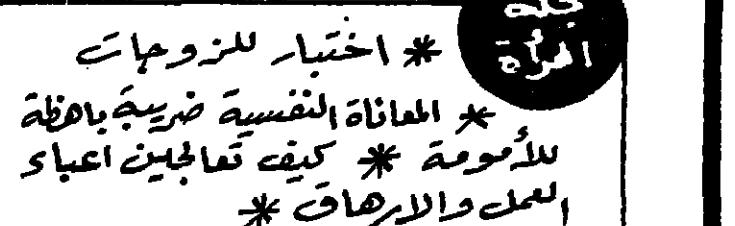 مجلة
المرأة
* اختبار للزوجات
* المعاناة النفسية ضريبة باهظة
للأمومة * كيف تعالجين اعباء
العمل والارهاق *